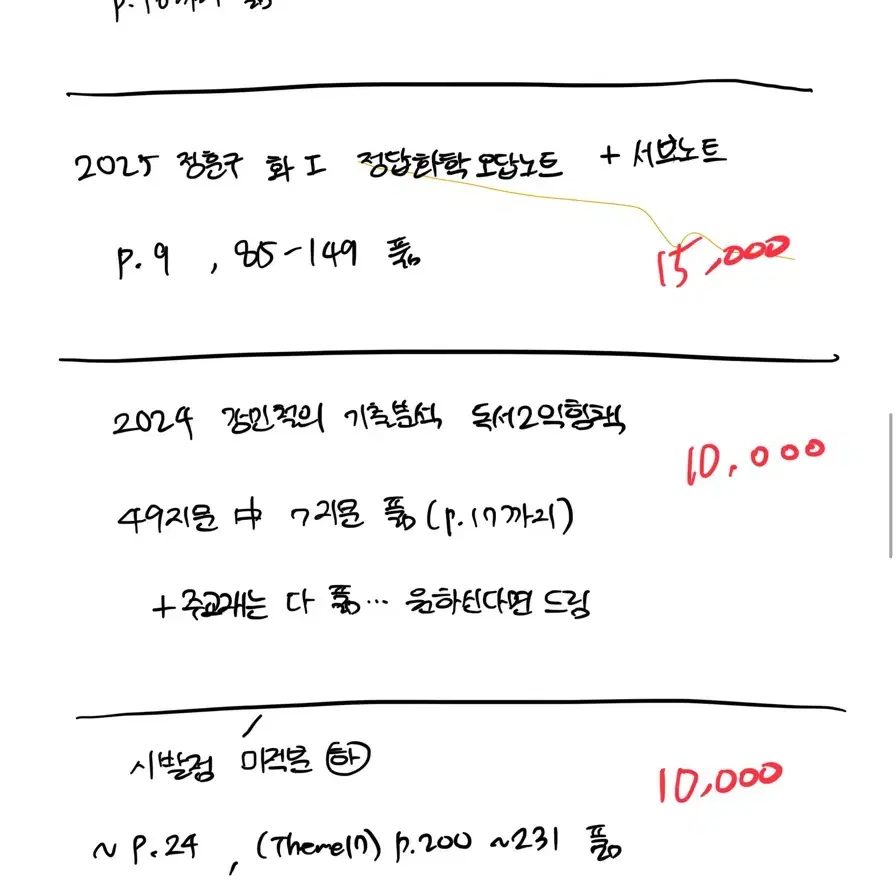 p.18까지 풂
2025 정훈구 화 I 정답화학 오답노트 + 서브노트
p.9 , 85-149 풂
15,000
2024 강민철의 기출분석 독서2 익힘책
10,000
49지문 中 7지문 풂 (p.17까지)
+ 주교재는 다 풂... 원하신다면 드림
시발점 미적분 (하)
10,000
~ p.24 , (Theme17) p.200 ~231 풂